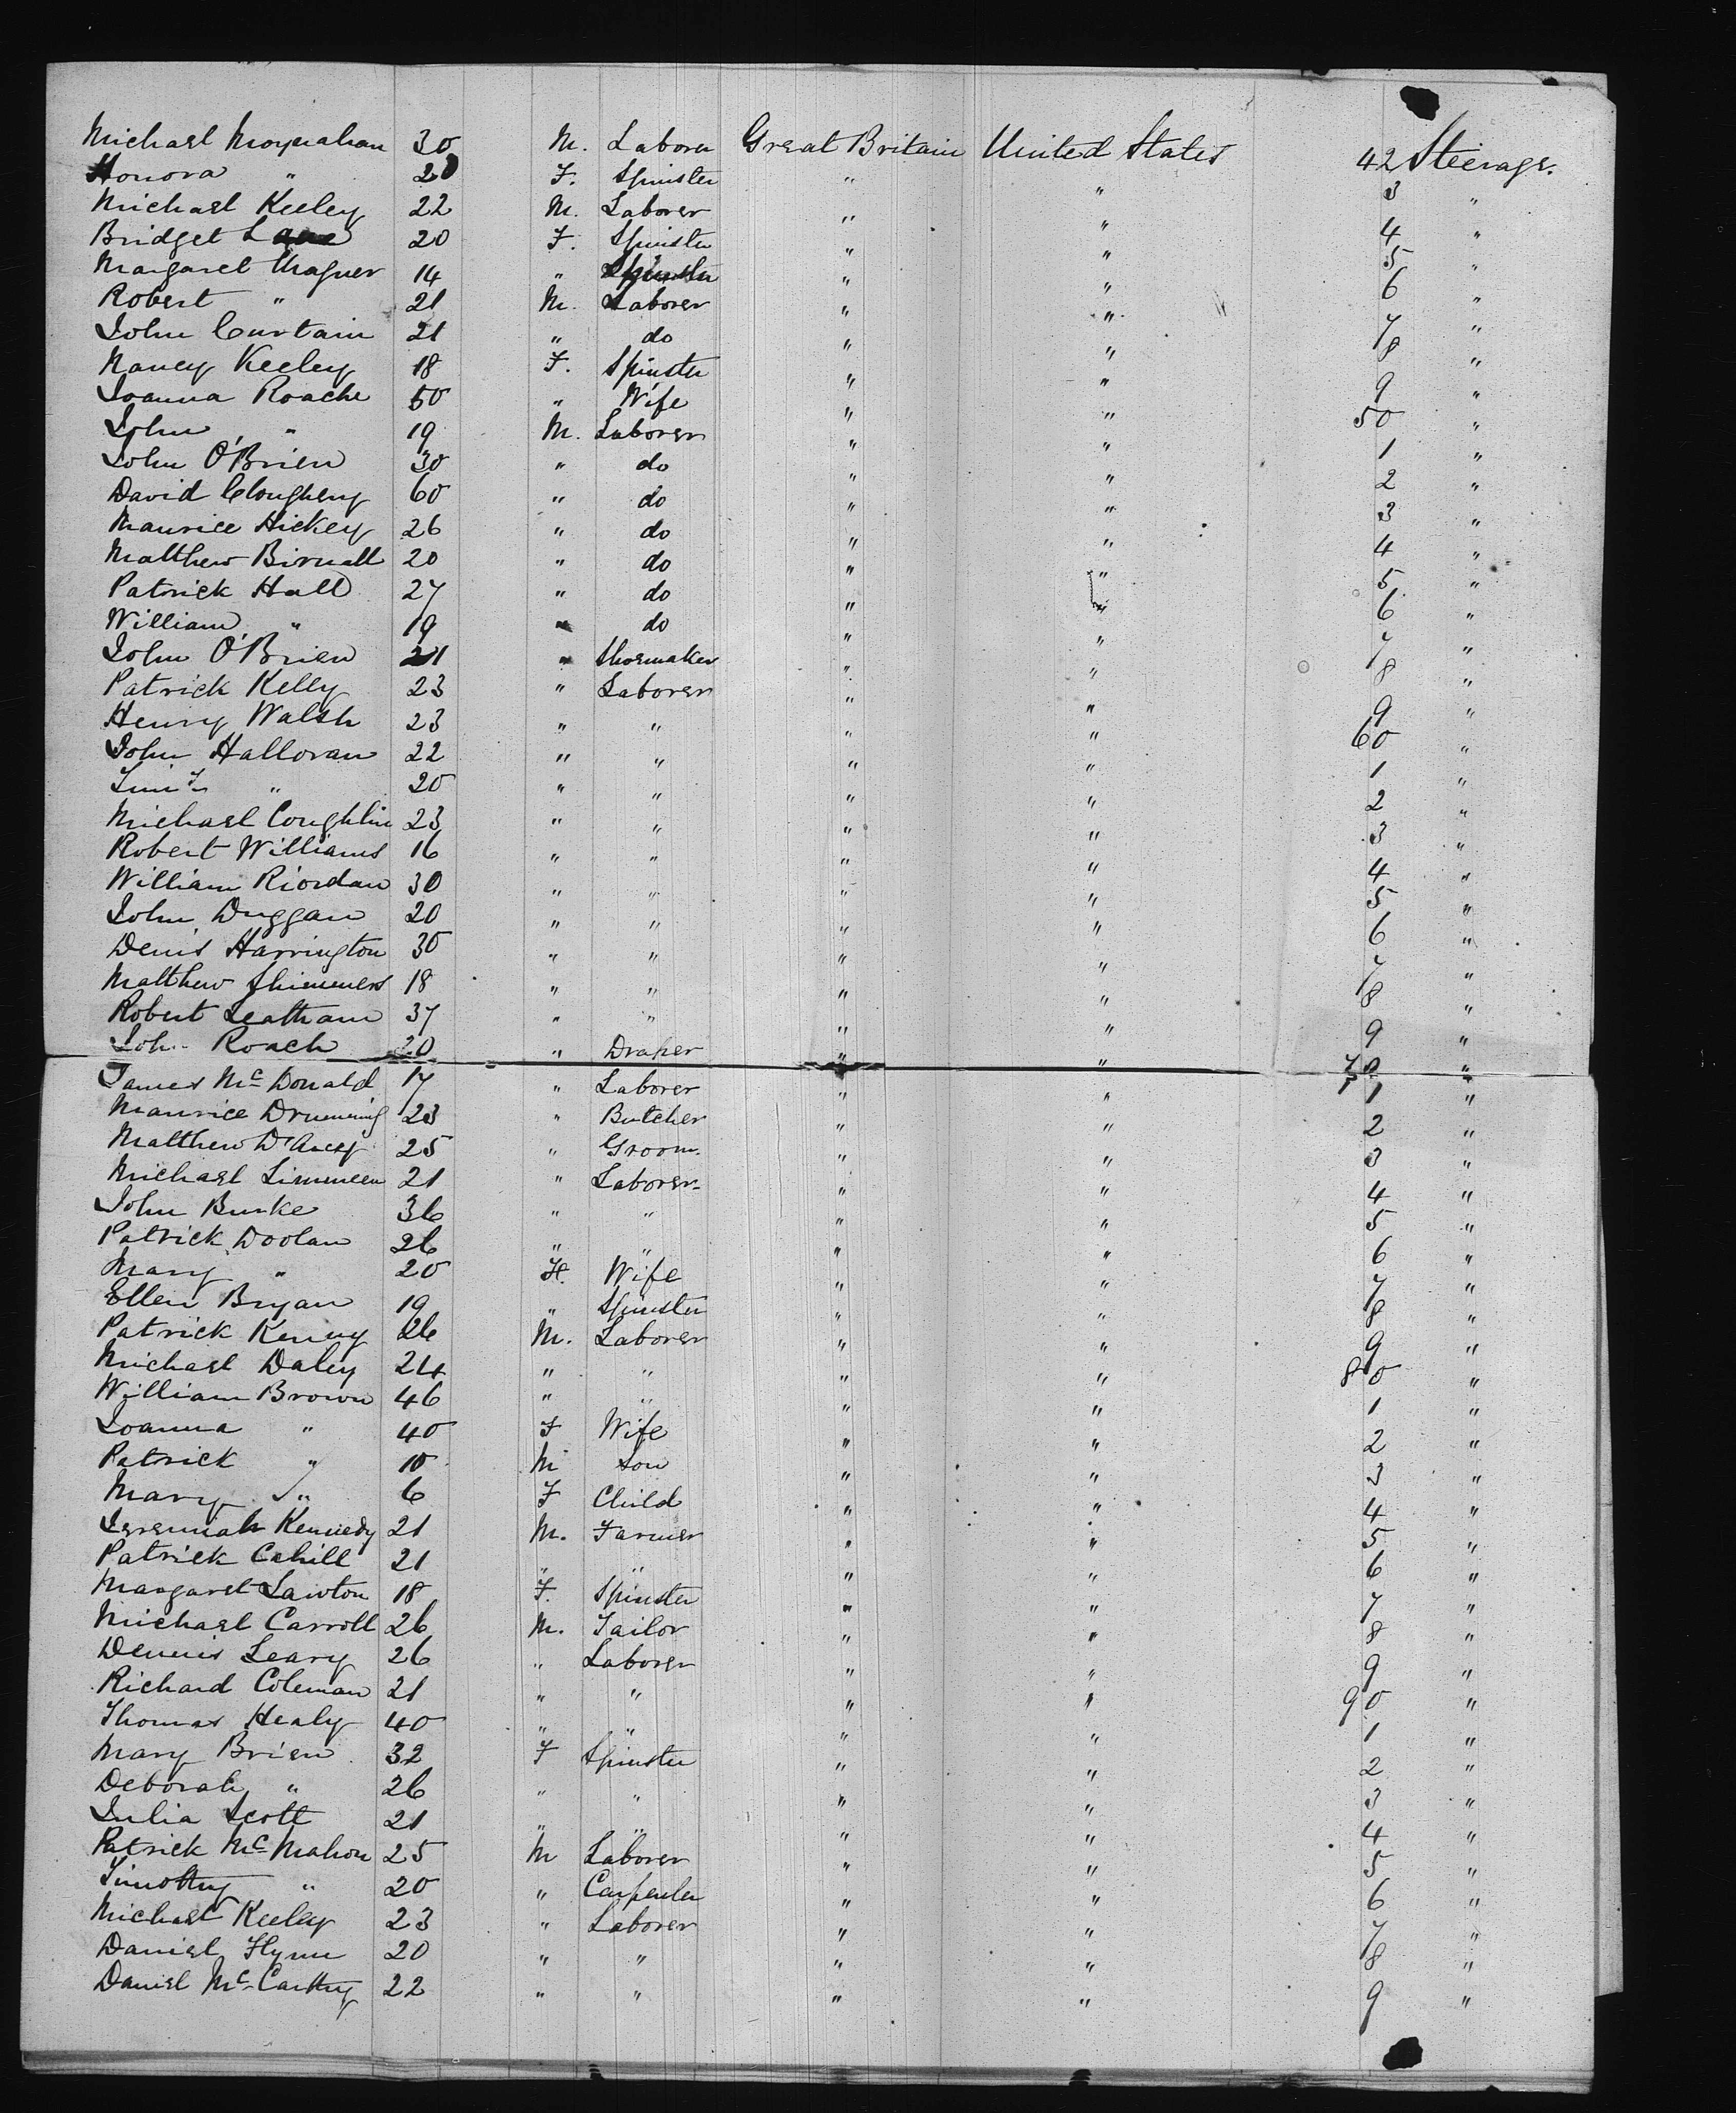 Michael Moynahan 30 M. Laborer Great Britain United States 42 Steerage.
Honora " 20 F. Spinster " " 3 "
Michael Keeley 22 M. Laborer " " 4 "
Bridget Lane 20 F. Spinster " " 5 "
Margaret Magner 14 " Spinster " " 6 "
Robert " 21 M. Laborer " " 7 "
John Curtain 21 " do " " 8 "
Nancy Keeley 18 F. Spinster " " 9 "
Joanna Roache 50 " Wife " " 50 "
John " 19 M. Laborer " " 1 "
John O'Brien 30 " do " " 2 "
David Cloughery 60 " do " " 3 "
Maurice Hickey 26 " do " " 4 "
Matthew 20 " do " " 5 "
Patrick Hall 27 " do " " 6 "
William " 19 " do " " 7 "
John O'Brien 21 " Shoemaker " " 8 "
Patrick Kelly 23 " Laborer " " 9 "
Henry Walsh 23 " " " " 60 "
John Halloran 22 " " " " 1 "
Timy " 20 " " " " 2 "
Michael Coughlin 23 " " " " 3 "
Robert Williams 16 " " " " 4 "
William Riordan 30 " " " " 5 "
John Duggan 20 " " " " 6 "
Denis Harrington 30 " " " " 7 "
Matthew 18 " " " " 8 "
Robert Leatham 37 " " " " 9 "
John Roach 20 " Draper " " 70 "
James McDonald 17 " Laborer " " 1 "
Maurice Drumming 23 " Butcher " " 2 "
Matthew D'Arcy 25 " Groom. " " 3 "
Michael 21 " Laborer " " 4 "
John Burke 36 " " " " 5 "
Patrick Doolan 26 " " " " 6 "
Mary " 20 F. Wife " " 7 "
Ellen Bryan 19 " Spinster " " 8 "
Patrick Kenny 26 M. Laborer " " 9 "
Michael Daley 24 " " " " 80 "
William Brown 46 " " " " 1 "
Joanna " 40 F Wife " " 2 "
Patrick " 10 M Son " " 3 "
Mary " 6 F Child " " 4 "
Jeremiah Kennedy 21 M. Farmer " " 5 "
Patrick Cahill 21 " " " " 6 "
Margaret Lawton 18 F. Spinster " " 7 "
Michael Carroll 26 M. Tailor " " 8 "
Dennis Leary 26 " Laborer " " 9 "
Richard Coleman 21 " " " " 90 "
Thomas Healy 40 " " " " 1 "
Mary Brien 32 F Spinster " " 2 "
Deborah " 26 " " " " 3 "
Julia Scott 21 " " " " 4 "
Patrick McMahon 25 M Laborer " " 5 "
Timothy " 20 " Carpenter " " 6 "
Michael Keeley 23 " Laborer " " 7 "
Daniel Flynn 20 " " " " 8 "
Daniel McCarthy 22 " " " " 9 "